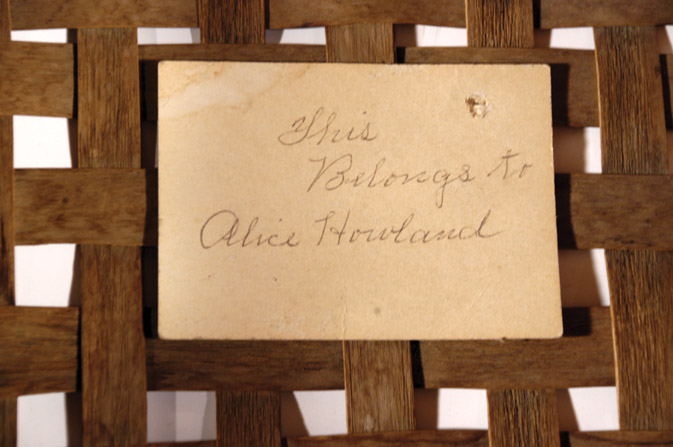 This
Belongs to
Alice Howland